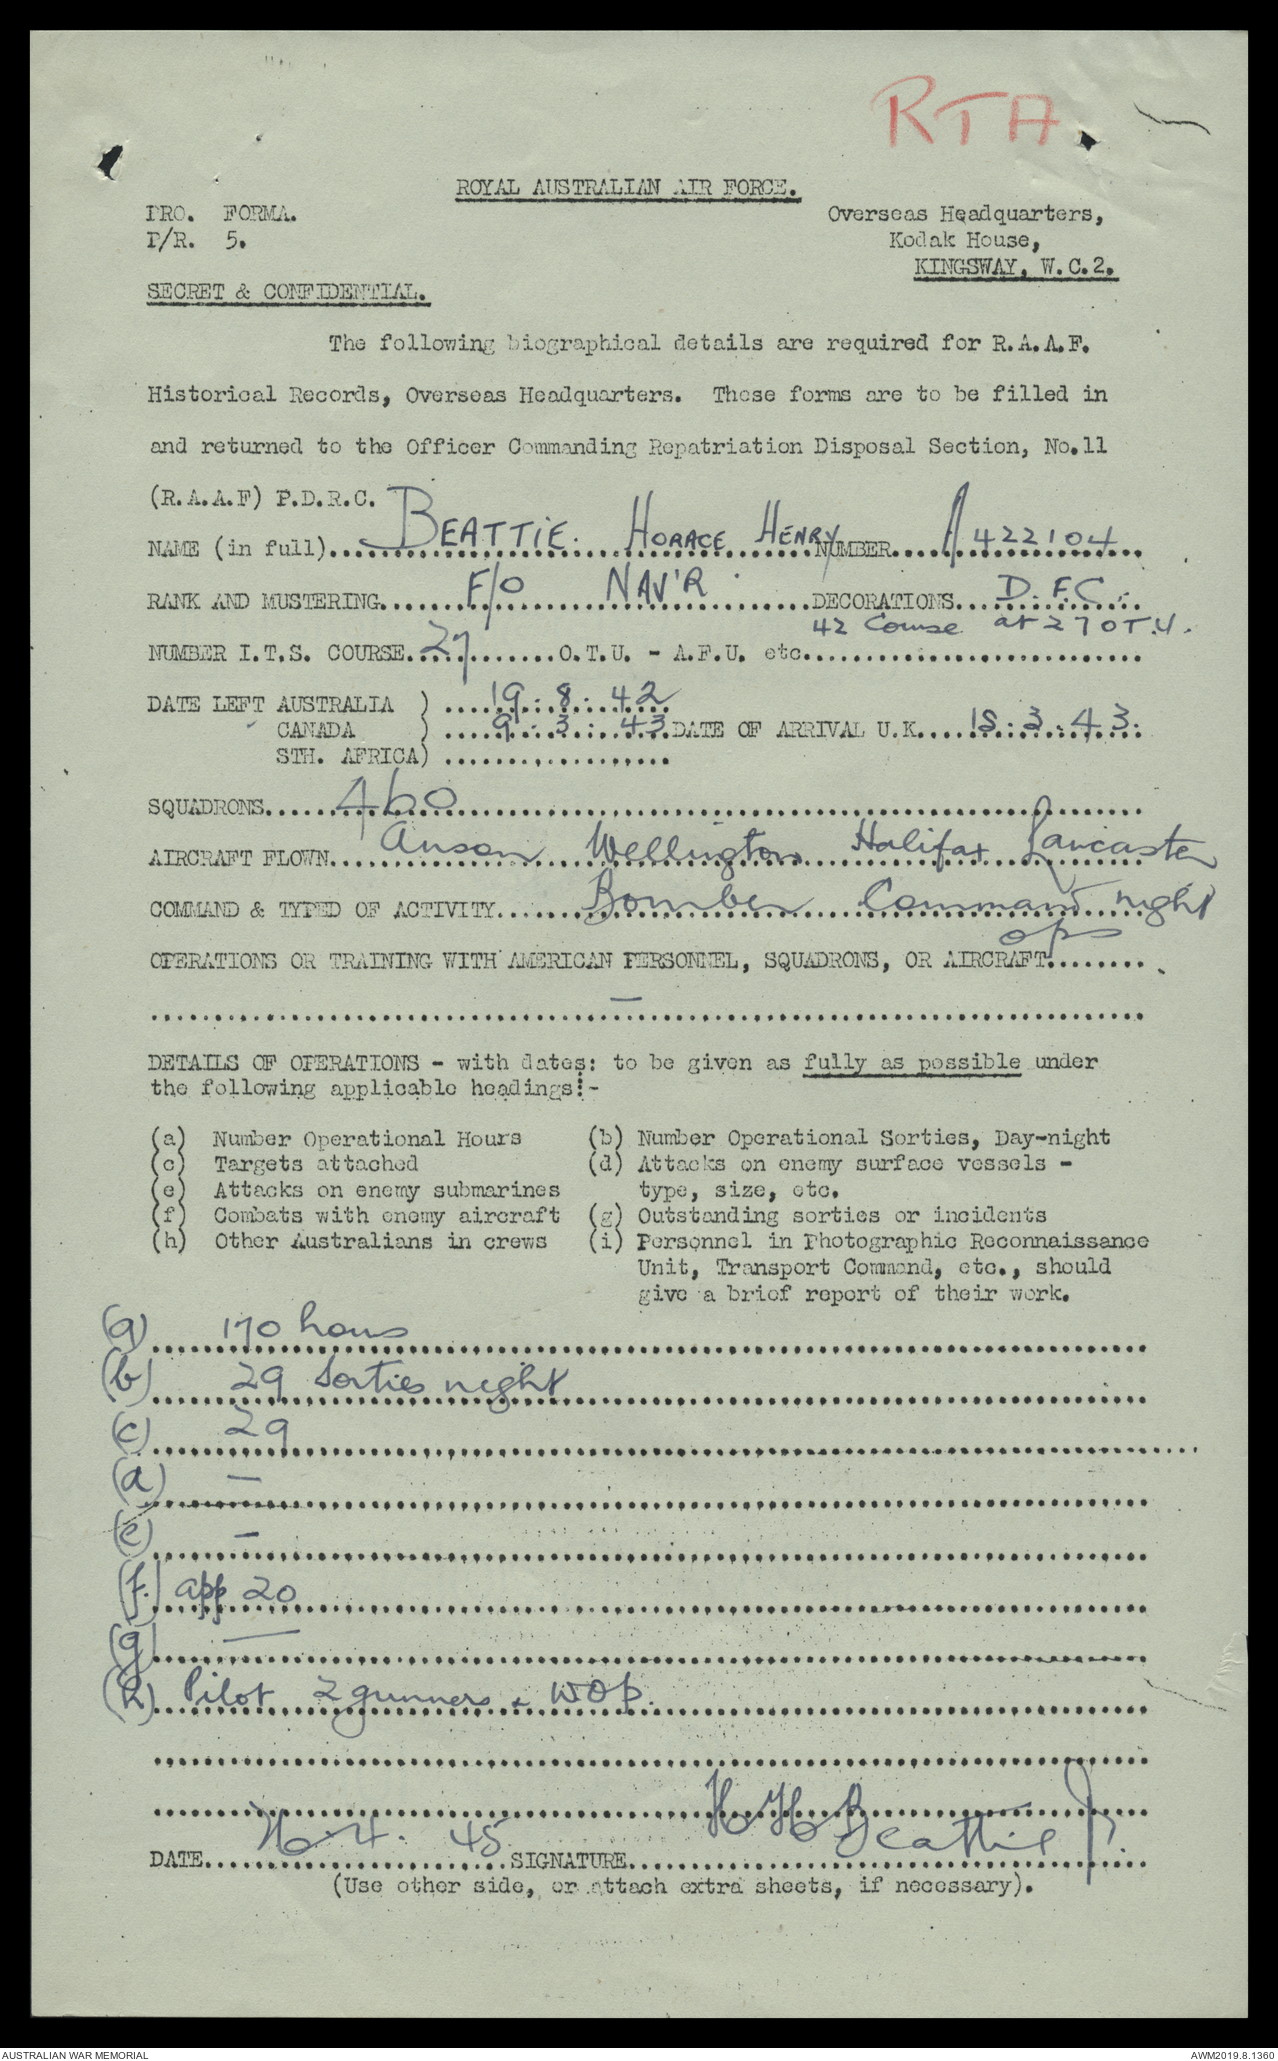 RTA
ROYAL AUSTRALIAN AIR FORCE.
PRO. FORMA. Overseas Headquarters,
P/R. 5. Kodak House,
KINGSWAY, W.C.2.
SECRET & CONFIDENTIAL.
The following biographical details are required for R.A.A.F.
Historical Records, Overseas Headquarters. These forms are to be filled in
and returned to the Officer Commanding Repatriation Disposal Section, No.11
(R.A.A.F) P.D.R.C.
NAME (in full) BEATTIE. HORACE HENRY NUMBER A422104
RANK AND MUSTERING F/O NAV'R DECORATIONS D.F.C.
42 Course at 27 OT.U.
NUMBER I.T.S. COURSE 27 O.T.U. - A.F.U. etc
DATE LEFT AUSTRALIA ) 19.8.42
CANADA ) 9.3.43 DATE OF ARRIVAL U.K. 18.3.43.
STH. AFRICA)
SQUADRONS 460
AIRCRAFT FLOWN Anson Wellington Halifax Lancaster
COMMAND & TYPED OF ACTIVITY Bomber Command night
ops
OPERATIONS OR TRAINING WITH AMERICAN PERSONNEL, SQUADRONS, OR AIRCRAFT
—
DETAILS OF OPERATIONS - with dates: to be given as fully as possible under
the following applicable headings:-
(a) Number Operational Hours (b) Number Operational Sorties, Day-night
(c) Targets attached (d) Attacks on enemy surface vessels -
(e) Attacks on enemy submarines type, size, etc.
(f) Combats with enemy aircraft (g) Outstanding sorties or incidents
(h) Other Australians in crews (i) Personnel in Photographic Reconnaissance
Unit, Transport Command, etc., should
give a brief report of their work.
(a) 170 hours
(b) 29 Sorties night
(c) 29
(d) —
(e) —
(f.) app 20
(g) —
(h) Pilot 2 gunners + WOp.
DATE 4. 45 SIGNATURE H H Beattie
(Use other side, or attach extra sheets, if necessary).
AUSTRALIAN WAR MEMORIAL AWM2019.8.1360